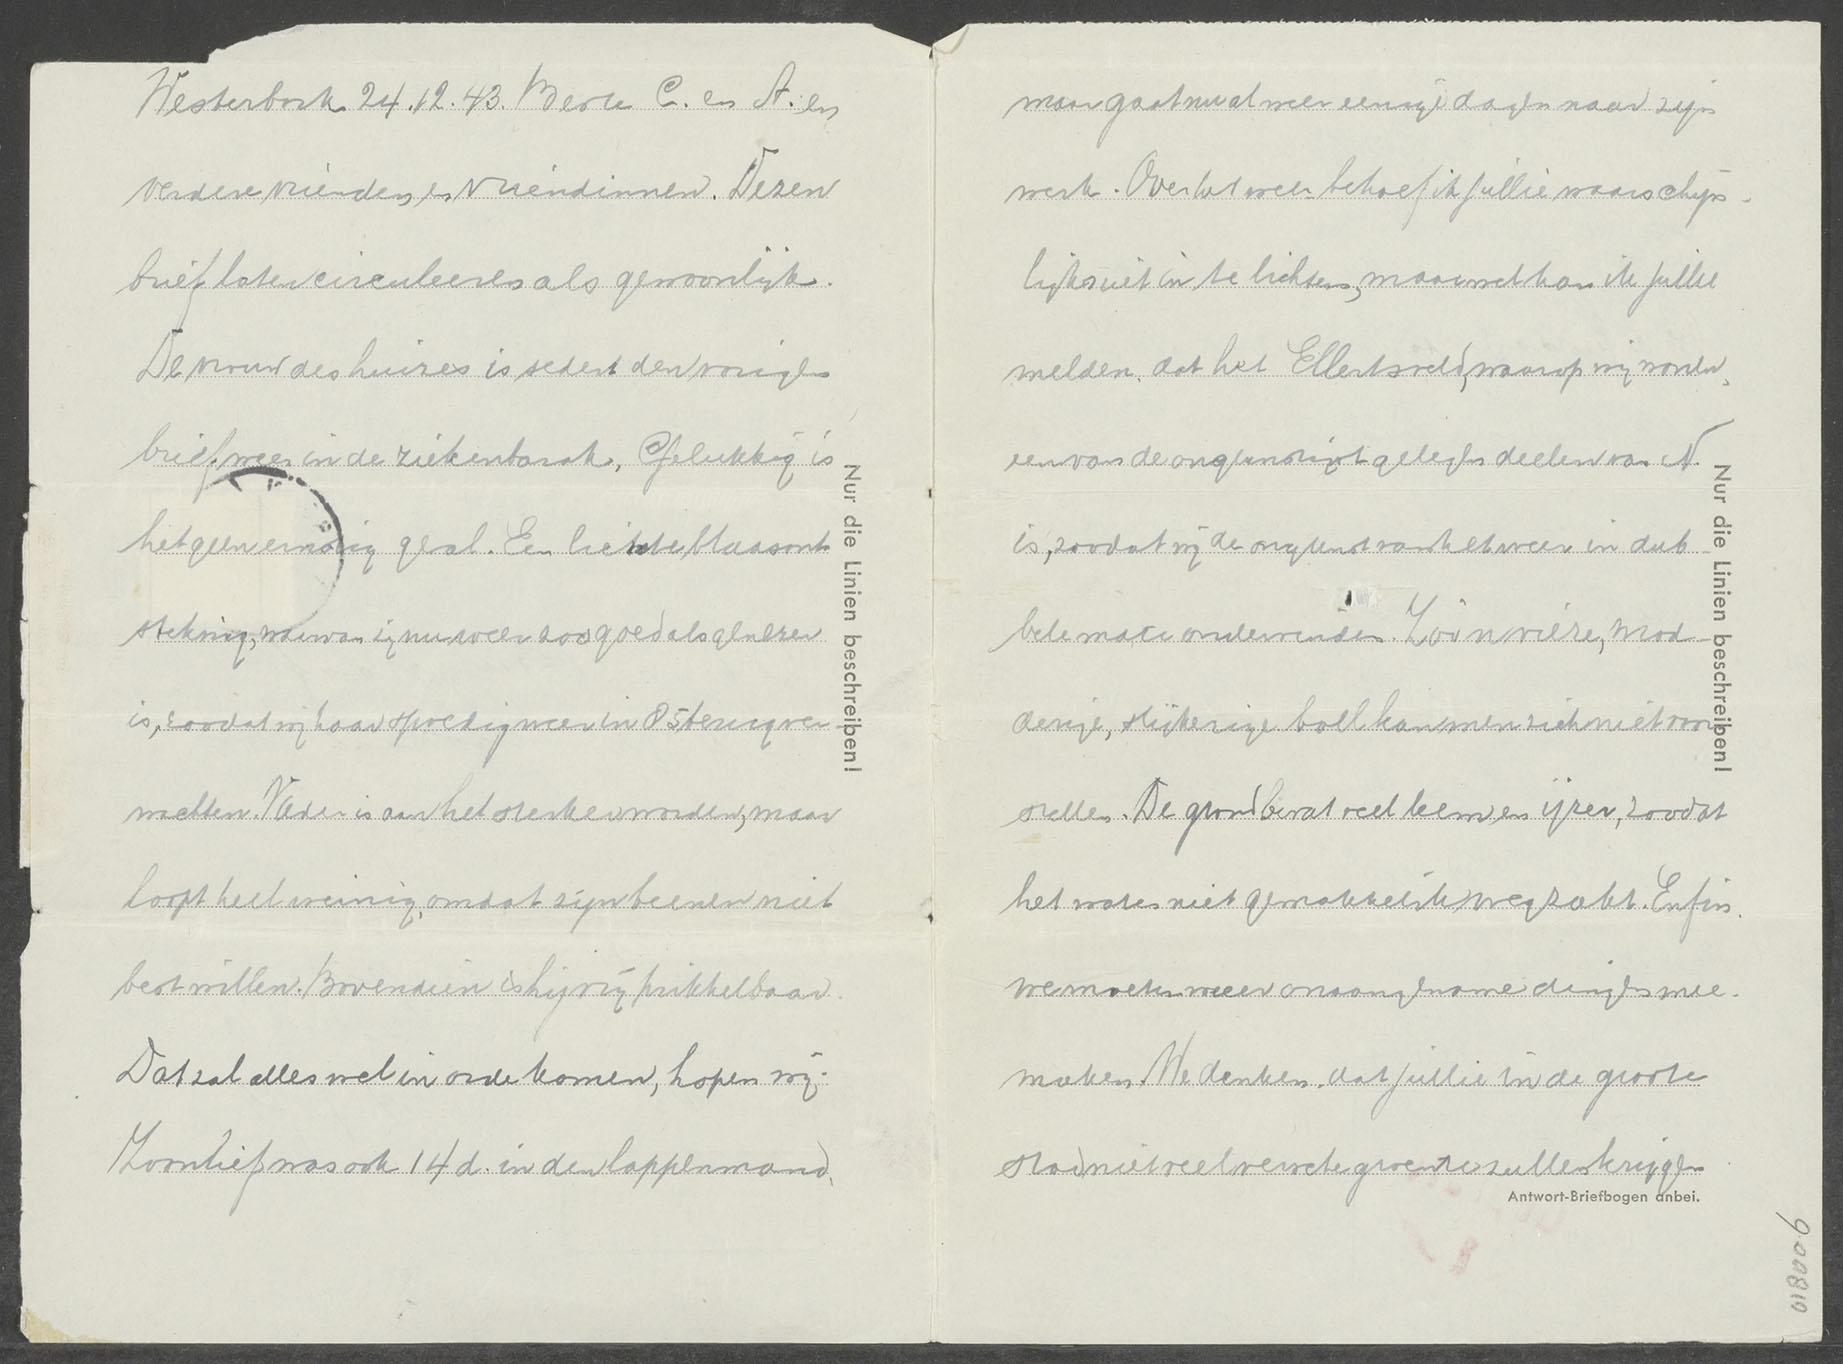 Westerbork 24.12.43. Beste C. en A. en
verdere vrienden en vriendinnen. Dezen
brief laten circuleeren als gewoonlijk.
De vrouw des huizes is sedert den vorigen
brief weer in de ziekenbarak. Gelukkig is
het geen ernstig geval. Een lichte blaasont-
steking, waarvan zij nu weer zoo goed als genezen
is, zoodat wij haar spoedig weer in 85 terug ver-
wachten. Vader is aan het sterker worden, maar
loopt heel weinig, omdat zijn beenen niet
best willen. Bovendien is hij vrij prikkelbaar.
Dat zal alles wel in orde komen, hopen wij.
Zoonlief was ook 14 d. in den lappenmand,
Nur die Linien beschreiben!
maar gaat nu al weer eenige dagen naar zijn
werk. Over het weer behoef ik jullie waarschijn-
lijk niet in te lichten, maar wel kan ik jullie
melden, dat het Ellertsveld, waarop wij wonen,
een van de ongunstigst gelegen deelen van N.
is, zoodat wij de ongunst van het weer in dub-
bele mate ondervinden. Zóó'n vieze, mod-
derige, slijkerige boel kan men zich niet voor
stellen. De grond bevat veel leem en ijzer, zoodat
het water niet gemakkelijk wegzakt. Enfin.
we moeten weer onaangename dingen mee-
maken. We denken, dat jullie in de groote
stad niet veel versche groente zullen krijgen
Nur die Linien beschreiben!
Antwort-Briefbogen anbei.